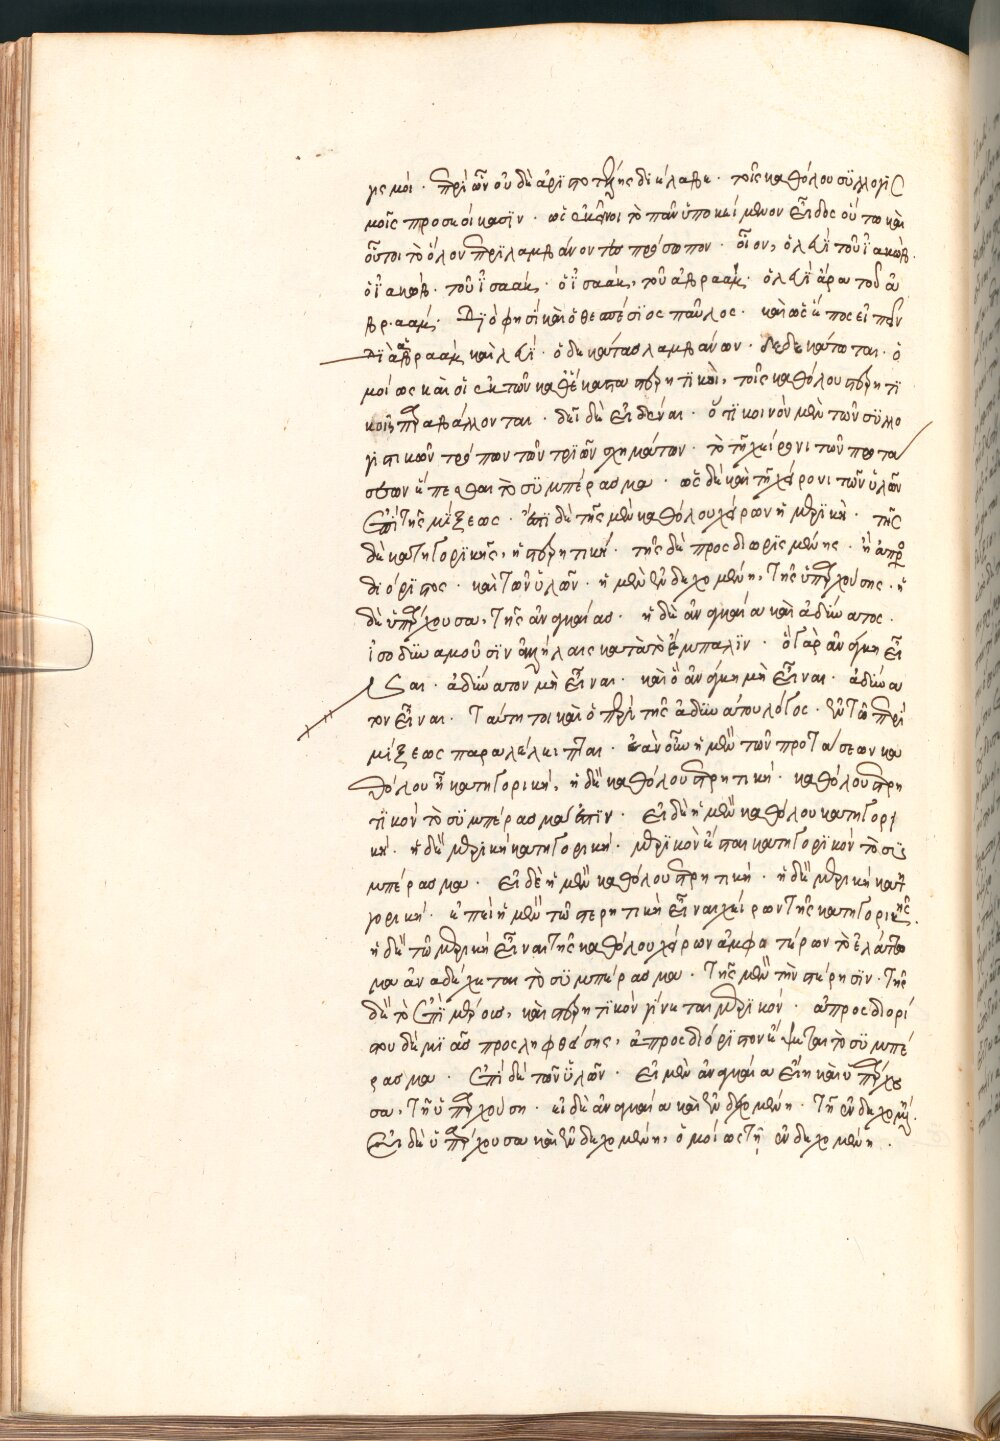 γισμοί · περὶ ὧν οὐδὲ ἀριστοτέλης διέλαβε · τοῖς καθόλου συλλογι
μοῖς προσεοίκασϊν · ὡς ἐκεῖνοι τὸ πᾶν ὑποκείμενον εἶδος οὕτω καὶ
οὗτοι τὸ ὅλον περιλαμβάνοντες πρόσωπον · οἷον, ὁ λευῒ τοῦ ϊακώβ ·
ὁ ϊακώβ · τοῦ ϊσαάκ · ὁ ϊσαάκ, τοῦ ἀβραάμ · ὁ λευῒ ἄρα τοῦ ἀ
βραάμ · διό φησι καὶ ὁ θεσπέσιος παῦλος · καὶ ὡς ἔπος εἰπεῖν
διὰ ἀβραὰμ καὶ λευῒ · ὁ δεκάτας λαμβάνων · δεδεκάτωται · ὁ
μοίως καὶ οἱ ἐκ τῶν καθέκαστα στερητϊκοὶ, τοῖς καθόλου στερητϊ
κοῖς παραβάλλονται · δεῖ δὲ εἰδέναι · ὅτϊ κοινὸν μὲν τῶν συλλο
γιστικῶν τρόπων τῶν τριῶν σχημάτων · τὸ τῇ χείρονι τῶν προτά
σεων ἕπεσθαι τὸ συμπέρασμα · ὡς δὲ καὶ τῇ χείρονι τῶν ὑλῶν
ἐπὶ τῆς μίξεως · ἔστϊ δὲ τῆς μὲν καθόλου χείρων ἡ μερϊκὴ · τῆς
δὲ κατηγορϊκῆς, ἡ στερητική · τῆς δὲ προσδιωρϊσμένης · ἡ ἀπροσ
διόρϊστος · καὶ τῶν ὑλῶν · ἡ μὲν ἐνδεχομένη, τῆς ὑπαρχούσης · ἡ
δὲ ὑπάρχουσα, τῆς ἀναγκαίας · ἡ δὲ ἀναγκαία καὶ ἀδύνατος ·
ἰσοδυναμοῦσϊν ἀλλήλαις κατὰ τὸ ἔμπαλϊν · ὃ γὰρ ἀνάγκη εἶ
ναι · ἀδύνατον μὴ εἶναι · καὶ ὃ ἀνάγκη μὴ εἶναι · ἀδύνα
τον εἶναι · ταύτη τοι καὶ ὁ περὶ τῆς ἀδυνάτου λόγος · ἐν τῷ περὶ
μίξεως παραλέλειπται · ἐὰν οὖν ἡ μὲν τῶν προτάσεων κα
θόλου ᾖ κατηγορική, ἡ δὲ καθόλου στερητική · καθόλου στερη
τϊκὸν τὸ συμπέρασμα ἐστὶν · εἰ δὲ ἡ μὲν καθόλου κατηγορι
κή · ἡ δὲ μερϊκὴ κατηγορική · μερϊκὸν ἔσται κατηγορϊκὸν τὸ συ
μπέρασμα · εἰ δὲ ἡ μὲν καθόλου στερητική · ἡ δὲ μερικὴ κατη
γορική · ἐπεὶ ἡ μὲν τῷ στερητικὴ εἶναι χείρων τῆς κατηγορικῆς ·
ἡ δὲ τῷ μερικὴ εἶναι τῆς καθόλου χείρων ἀμφοτέρων τὸ ἐλάττω
μα ἀναδέχεται τὸ συμπέρασμα · τῆς μὲν τὴν στέρησϊν · τῆς
δὲ τὸ ἐπὶ μέρους, καὶ στερητϊκὸν γίνεται μερϊκόν · ἀπροσδιορί
στου δὲ μιᾶς προσληφθείσης, ἀπροσδιόρϊστον ἕψεται τὸ συμπέ
ρασμα · ἐπὶ δὲ τῶν ὑλῶν · εἰ μὲν ἀναγκαία εἴη καὶ ὑπάρχου
σα, τῇ ὑπαρχούσῃ · εἰ δὲ ἀναγκαία καὶ ἐνδεχομένη · τῇ ἐνδεχομένῃ ·
εἰ δὲ ὑπάρχουσα καὶ ἐνδεχομένη, ὁμοίως τῇ ἐνδεχομένη .